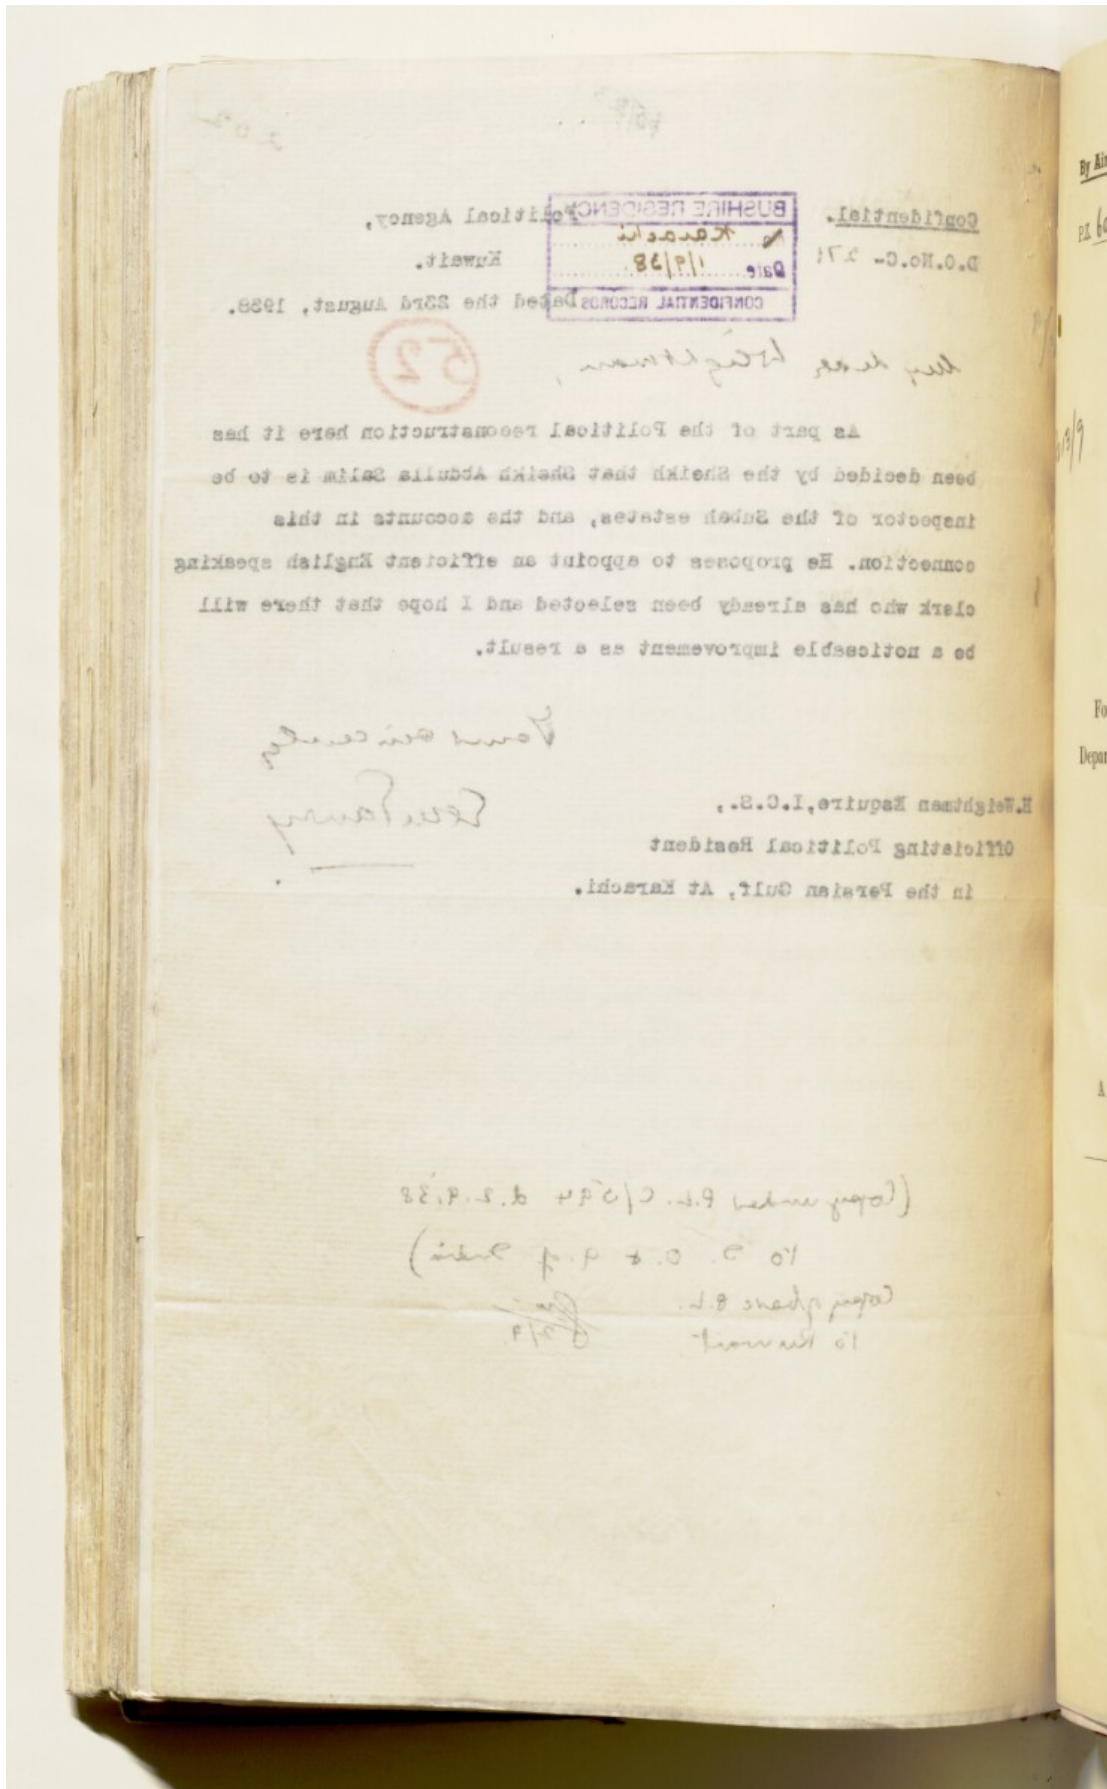 Confidential.
Political Agency,
D.O.No.C- 271
Kuwait.
Dated the 23rd August, 1938.
BUSHIRE RESIDENCY
No Karachi
Date 1/9/38
CONFIDENTIAL RECORDS
52
My dear Weightman,
As part of the Political reconstruction here it has
been decided by the Sheikh that Sheikh Abdulla Salim is to be
inspector of the Subah estates, and the accounts in this
connection. He proposes to appoint an efficient English speaking
clerk who has already been selected and I hope that there will
be a noticeable improvement as a result.
Yours sincerely
H.Weightman Esquire,I.C.S.,
Officiating Political Resident
in the Persian Gulf, At Karachi.
(Copy under P.L. C/594 d.2.9.38
to I. O. & G. of India)
Copy of above P.L.
to Kuwait
2/9
202
By Air
P.Z.
13/9
Fo
Depar
A